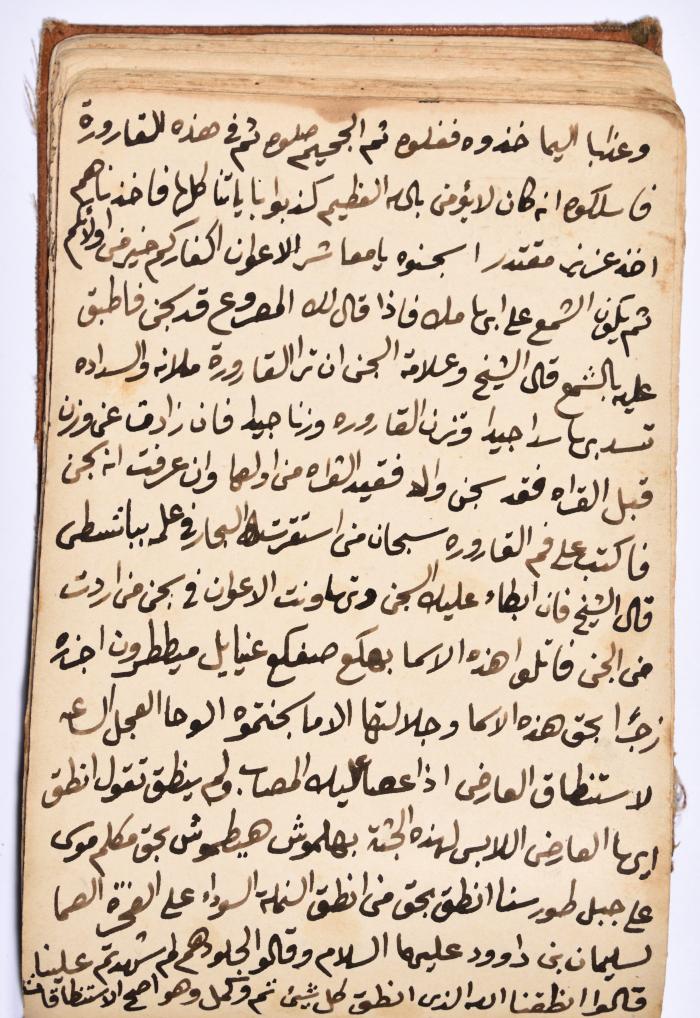 وعذابا اليما خذوه فغلوه ثم الجحيم صلوه ثم في هذه القارورة
فاسلكوه انه كان لا يؤمن بالله العظيم كذبوا باياتنا كلها فاخذناهم
اخذ عزيز مقتدر اسجنوه يا معاشر الاعوان اكفاركم خير من اولائكم
ثم يكون الشمع على ابهامك فاذا قال لك المصروع قد سجن فاطبق
عليه بالشمع قال الشيخ وعلامة السجن ان ترا القارورة ملانه والسداده
تسد بها سدا جيدا وتزن القاروره وزنا جيدا فان زادت عن وزن
قبل القراه فقد سجن والا فقيد القراه من اولها وان عرفت انه سجن
فاكتب على فم القاروره سبحان من استقرت البحار في علمه
قال الشيخ فان ابطاء عليك السجن وتهاونت الاعوان في سجن من اردت
من الجن فاتلوا هذه الاسما بهكع صفكع عنيايل ميططرون اجزه
زجرا بحق هذه الاسما وجلالتها الا ما سجنتموه الوحا العجل الساعه
لاستنطاق العارض اذا عصا عليك المصاب ولم ينطق تقول انطق
ايها العارض اللابس لهذه الجثة بهلموش هيطموش بحق مكلم موسى
على جبل طور سينا انطق بحق من انطق النملة السوداء على الصخرة الصما
لسليمان بن داوود عليهما السلام وقالوا لجلودهم لم شهدتم علينا
قالوا انطقنا الله الذي انطق كل شيئ تم وكمل وهو اصح الاستنطاقات